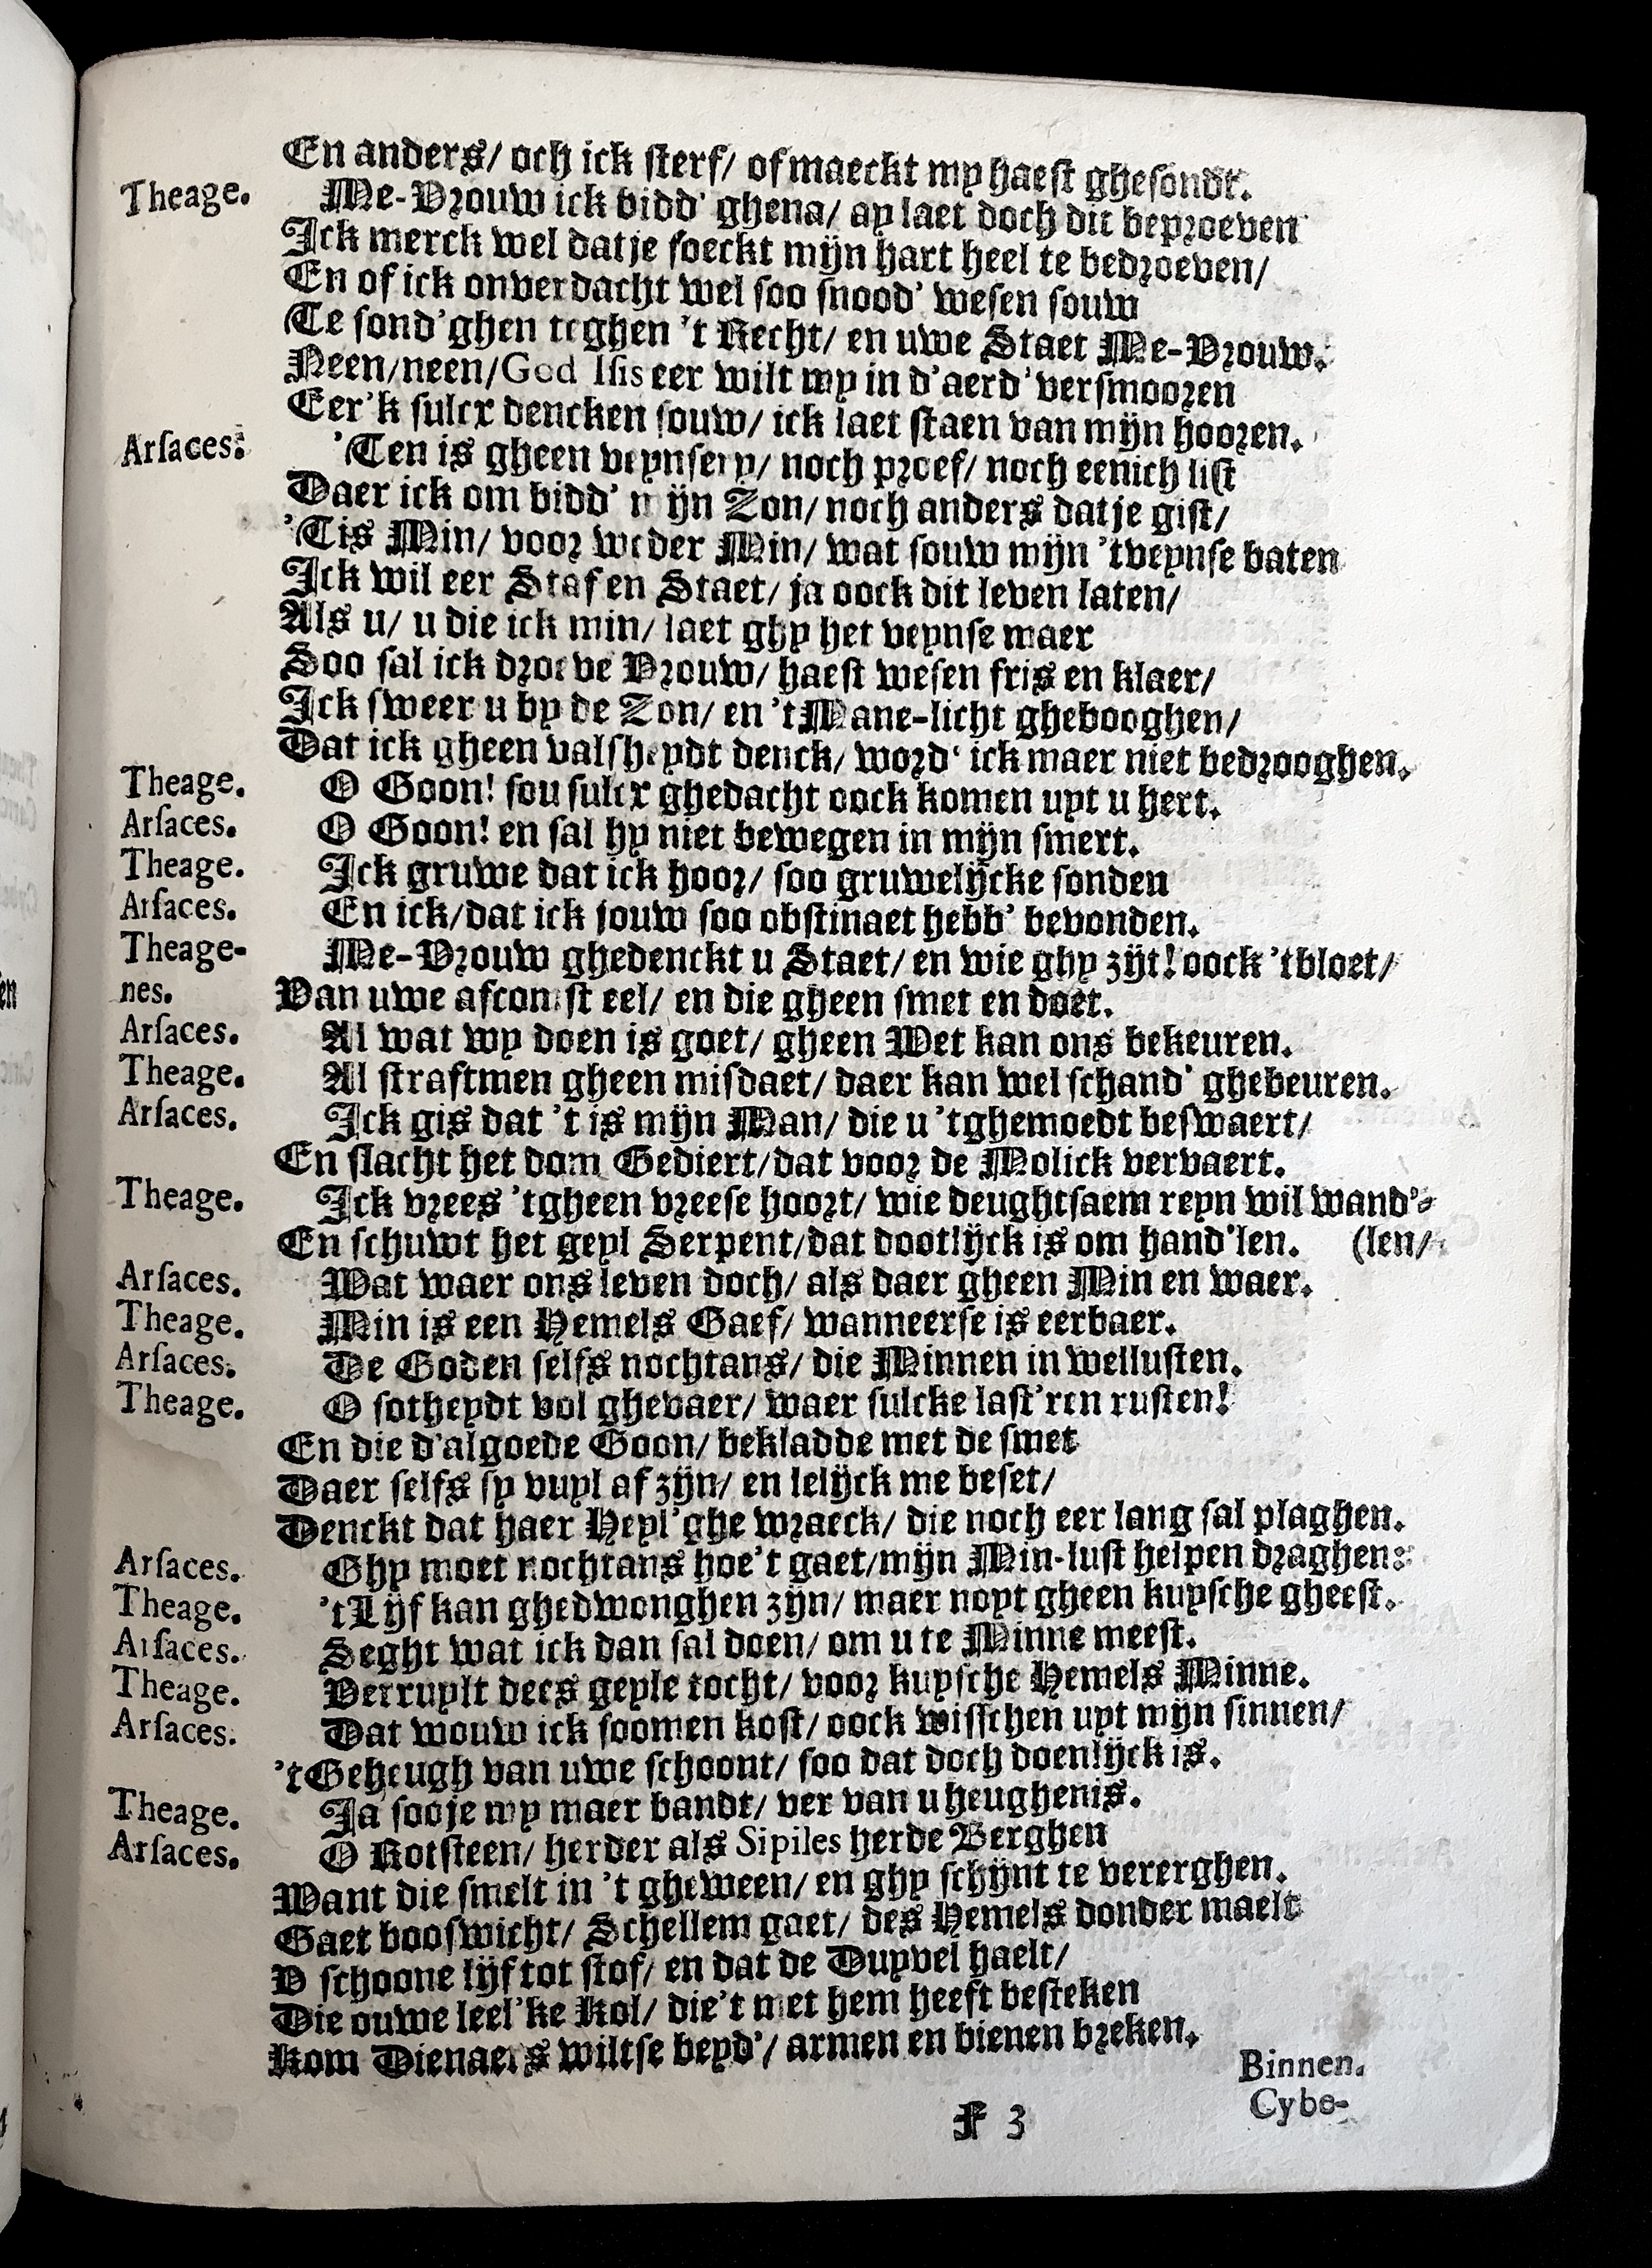 En anders/ och ick sterf/ of maeckt my haest ghesondt.
Theage. Me-Vrouw ick bidd' ghena/ ay laet doch dit beproeven
Ick merck wel datje soeckt mijn hart heel te bedroeven/
En of ick onverdacht wel soo snood' wesen souw
Te sond'ghen teghen 't Recht/ en uwe Staet Me-Vrouw.
Neen/neen/God Isis eer wilt my in d'aerd' versmooren
Eer'k sulcx dencken souw/ ick laet staen van mijn hooren.
Arsaces. 'Ten is gheen veynsery/ noch proef/ noch eenich list
Daer ick om bidd' mijn Zon/ noch anders datje gist/
'Tis Min/ voor weder Min/ wat souw mijn 'tveynse baten
Ick wil eer Staf en Staet/ ja oock dit leven laten/
Als u/ u die ick min/ laet ghy het veynse maer
Soo sal ick droeve Vrouw/ haest wesen fris en klaer/
Ick sweer u by de Zon/ en 't Mane-licht ghebooghen/
Dat ick gheen valsheydt denck/ word' ick maer niet bedrooghen.
Theage. O Goon! sou sulcx ghedacht oock komen uyt u hert.
Arsaces. O Goon! en sal hy niet bewegen in mijn smert.
Theage. Ick gruwe dat ick hoor/ soo gruwelijcke sonden
Arsaces. En ick/dat ick jouw soo obstinaet hebb' bevonden.
Theage- Me-Vrouw ghedenckt u Staet/ en wie ghy zijt! oock 'tbloet/
nes. Van uwe afcomst eel/ en die gheen smet en doet.
Arsaces. Al wat wy doen is goet/ gheen Wet kan ons bekeuren.
Theage. Al straftmen gheen misdaet/ daer kan wel schand' ghebeuren.
Arsaces. Ick gis dat 't is mijn Man/ die u 'tghemoedt beswaert/
En slacht het dom Gediert/dat voor de Molick vervaert.
Theage. Ick vrees 'tgheen vreese hoort/ wie deughtsaem reyn wil wand'-
En schuwt het geyl Serpent/dat dootlijck is om hand'len. (len/
Arsaces. Wat waer ons leven doch/ als daer gheen Min en waer.
Theage. Min is een Hemels Gaef/ wanneerse is eerbaer.
Arsaces. De Goden selfs nochtans/ die Minnen in wellusten.
Theage. O sotheydt vol ghevaer/ waer sulcke last'ren rusten!
En die d'algoede Goon/ bekladde met de smet
Daer selfs sy vuyl af zijn/ en lelijck me beset/
Denckt dat haer Heyl'ghe wraeck/ die noch eer lang sal plaghen.
Arsaces. Ghy moet nochtans hoe't gaet/mijn Min-lust helpen draghen:
Theage. 't Lijf kan ghedwonghen zijn/ maer noyt gheen kuysche gheest.
Arsaces. Seght wat ick dan sal doen/ om u te Minne meest.
Theage. Verruylt dees geyle tocht/ voor kuysche Hemels Minne.
Arsaces. Dat wouw ick soomen kost/ oock wisschen uyt mijn sinnen/
't Geheugh van uwe schoont/ soo dat doch doenlijck is.
Theage. Ja sooje my maer bandt/ ver van u heughenis.
Arsaces. O Rotsteen/ herder als Sipiles herde Berghen
Want die smelt in 't gheween/ en ghy schijnt te vererghen.
Gaet booswicht/ Schellem gaet/ des Hemels donder maelt
V schoone lijf tot stof/ en dat de Duyvel haelt/
Die ouwe leel'ke Kol/ die't met hem heeft besteken
Kom Dienaers wiltse beyd'/ armen en bienen breken.
Binnen.
F 3 Cybe-